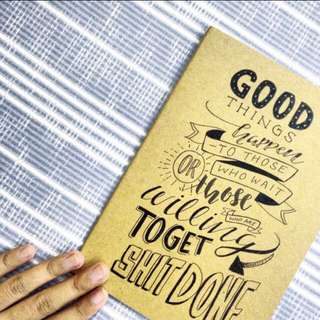 GOOD
THINGS
happen
TO THOSE
WHO WAIT
OR those
WHO ARE
willing
TO GET
SHIT DONE